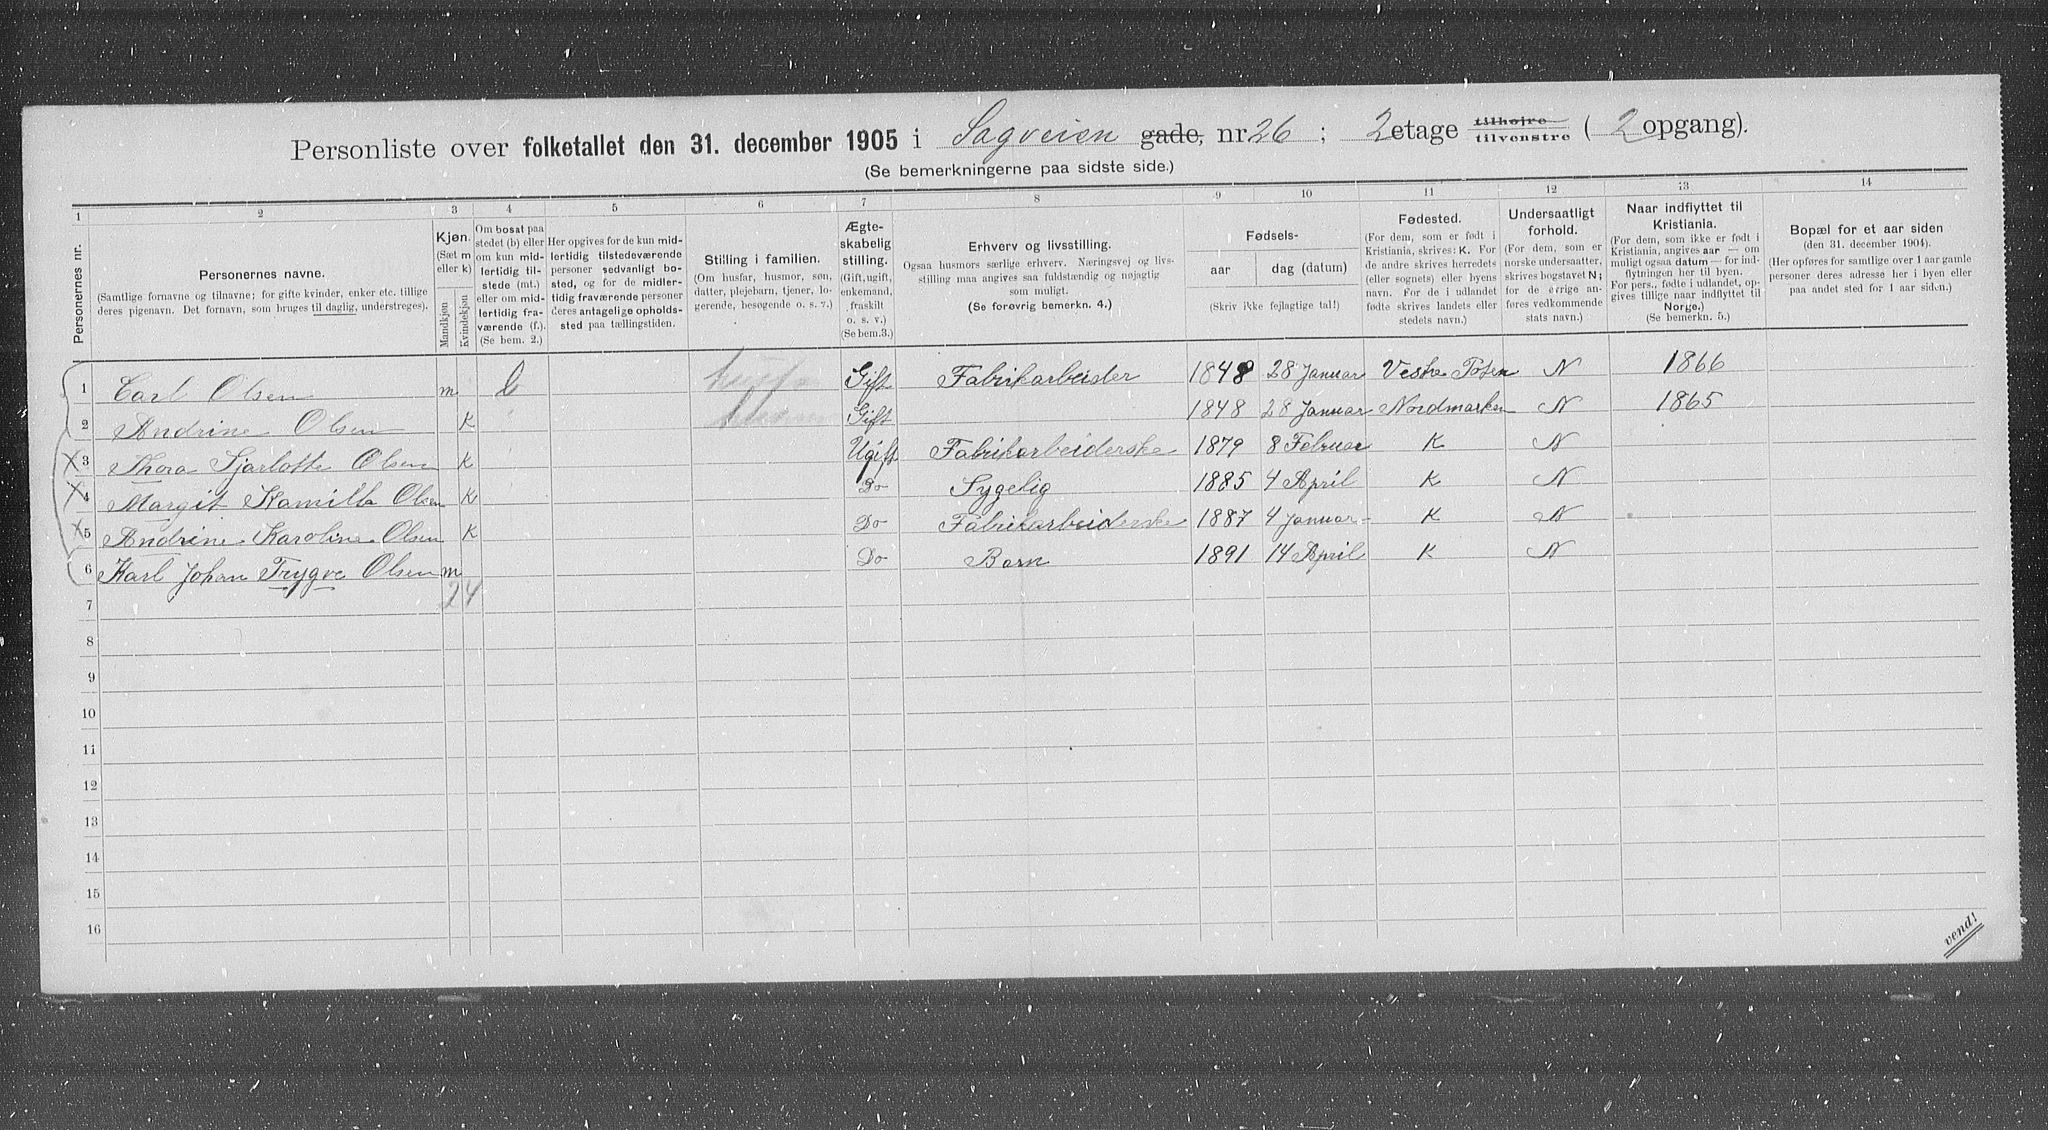 Personliste over folketallet den 31. december 1905 i Sagveien gade, nr. 26 ; 2 etage tilhøire tilvenstre ( 2 opgang).
(Se bemerkningerne paa sidste side.)
1 2 3 4 5 6 7 8 9 10 11 12 13 14
Personernes nr.
Personernes navne.
(Samtlige fornavne og tilnavne; for gifte kvinder, enker etc. tillige
deres pigenavn. Det fornavn, som bruges til daglig, understreges).
Kjøn.
(Sæt m
eller k)
Mandkjøn
Kvindekjøn
Om bosat paa
stedet (b) eller
om kun mid-
lertidig til-
stede (mt.)
eller om mid-
lertidig fra-
værende (f.).
(Se bem. 2.)
Her opgives for de kun mid-
lertidig tilstedeværende
personer sedvanligt bo-
sted, og for de midler-
tidig fraværende personer
deres antagelige opholds-
sted paa tællingstiden.
Stilling i familien.
(Om husfar, husmor, søn,
datter, plejebarn, tjener, lo-
gerende, besøgende o. s. v.)
Ægte-
skabelig
stilling.
(Gift, ugift,
enkemand,
fraskilt
o. s. v.)
(Se bem. 3.)
Erhverv og livsstilling.
Ogsaa husmors særlige erhverv. Næringsvej og livs-
stilling maa angives saa fuldstændig og nøjagtig
som muligt.
(Se forøvrig bemerkn. 4.)
Fødsels-
aar
dag (datum)
(Skriv ikke fejlagtige tal!)
Fødested.
(For dem, som er født i
Kristiania, skrives: K. For
de andre skrives herredets
(eller sognets) eller byens
navn. For de i udlandet
fødte skrives landets eller
stedets navn.)
Undersaatligt
forhold.
(For dem, som er
norske undersaatter,
skrives bogstavet N;
for de øvrige an-
føres vedkommende
stats navn.)
Naar indflyttet til
Kristiania.
(For dem, som ikke er født i
Kristiania, angives aar — om
muligt ogsaa datum — for ind-
flytningen her til byen.
For pers., fødte i udlandet, op-
gives tillige naar indflyttet til
Norge.)
(Se bemerkn. 5.)
Bopæl for et aar siden
(den 31. december 1904).
(Her opføres for samtlige over 1 aar gamle
personer deres adresse her i byen eller
paa andet sted for 1 aar siden.)
1 Carl Olsen m b Gift Fabrikarbeider 1848 28 Januar Vestre Toten N 1866
2 Andrine Olsen K Gift 1848 28 Januar Nordmarken N 1865
X 3 Thora Sjarlotte Olsen K Ugift Fabrikarbeiderske 1879 8 Februar K N
X 4 Margit Kamilla Olsen K Do Sygelig 1885 4 April K N
X 5 Andrine Karoline Olsen K Do Fabrikarbeiderske 1887 4 Januar K N
6 Karl Johan Trygve Olsen m Do Barn 1891 14 April K N
7 24
8
9
10
11
12
13
14
15
16
vend!